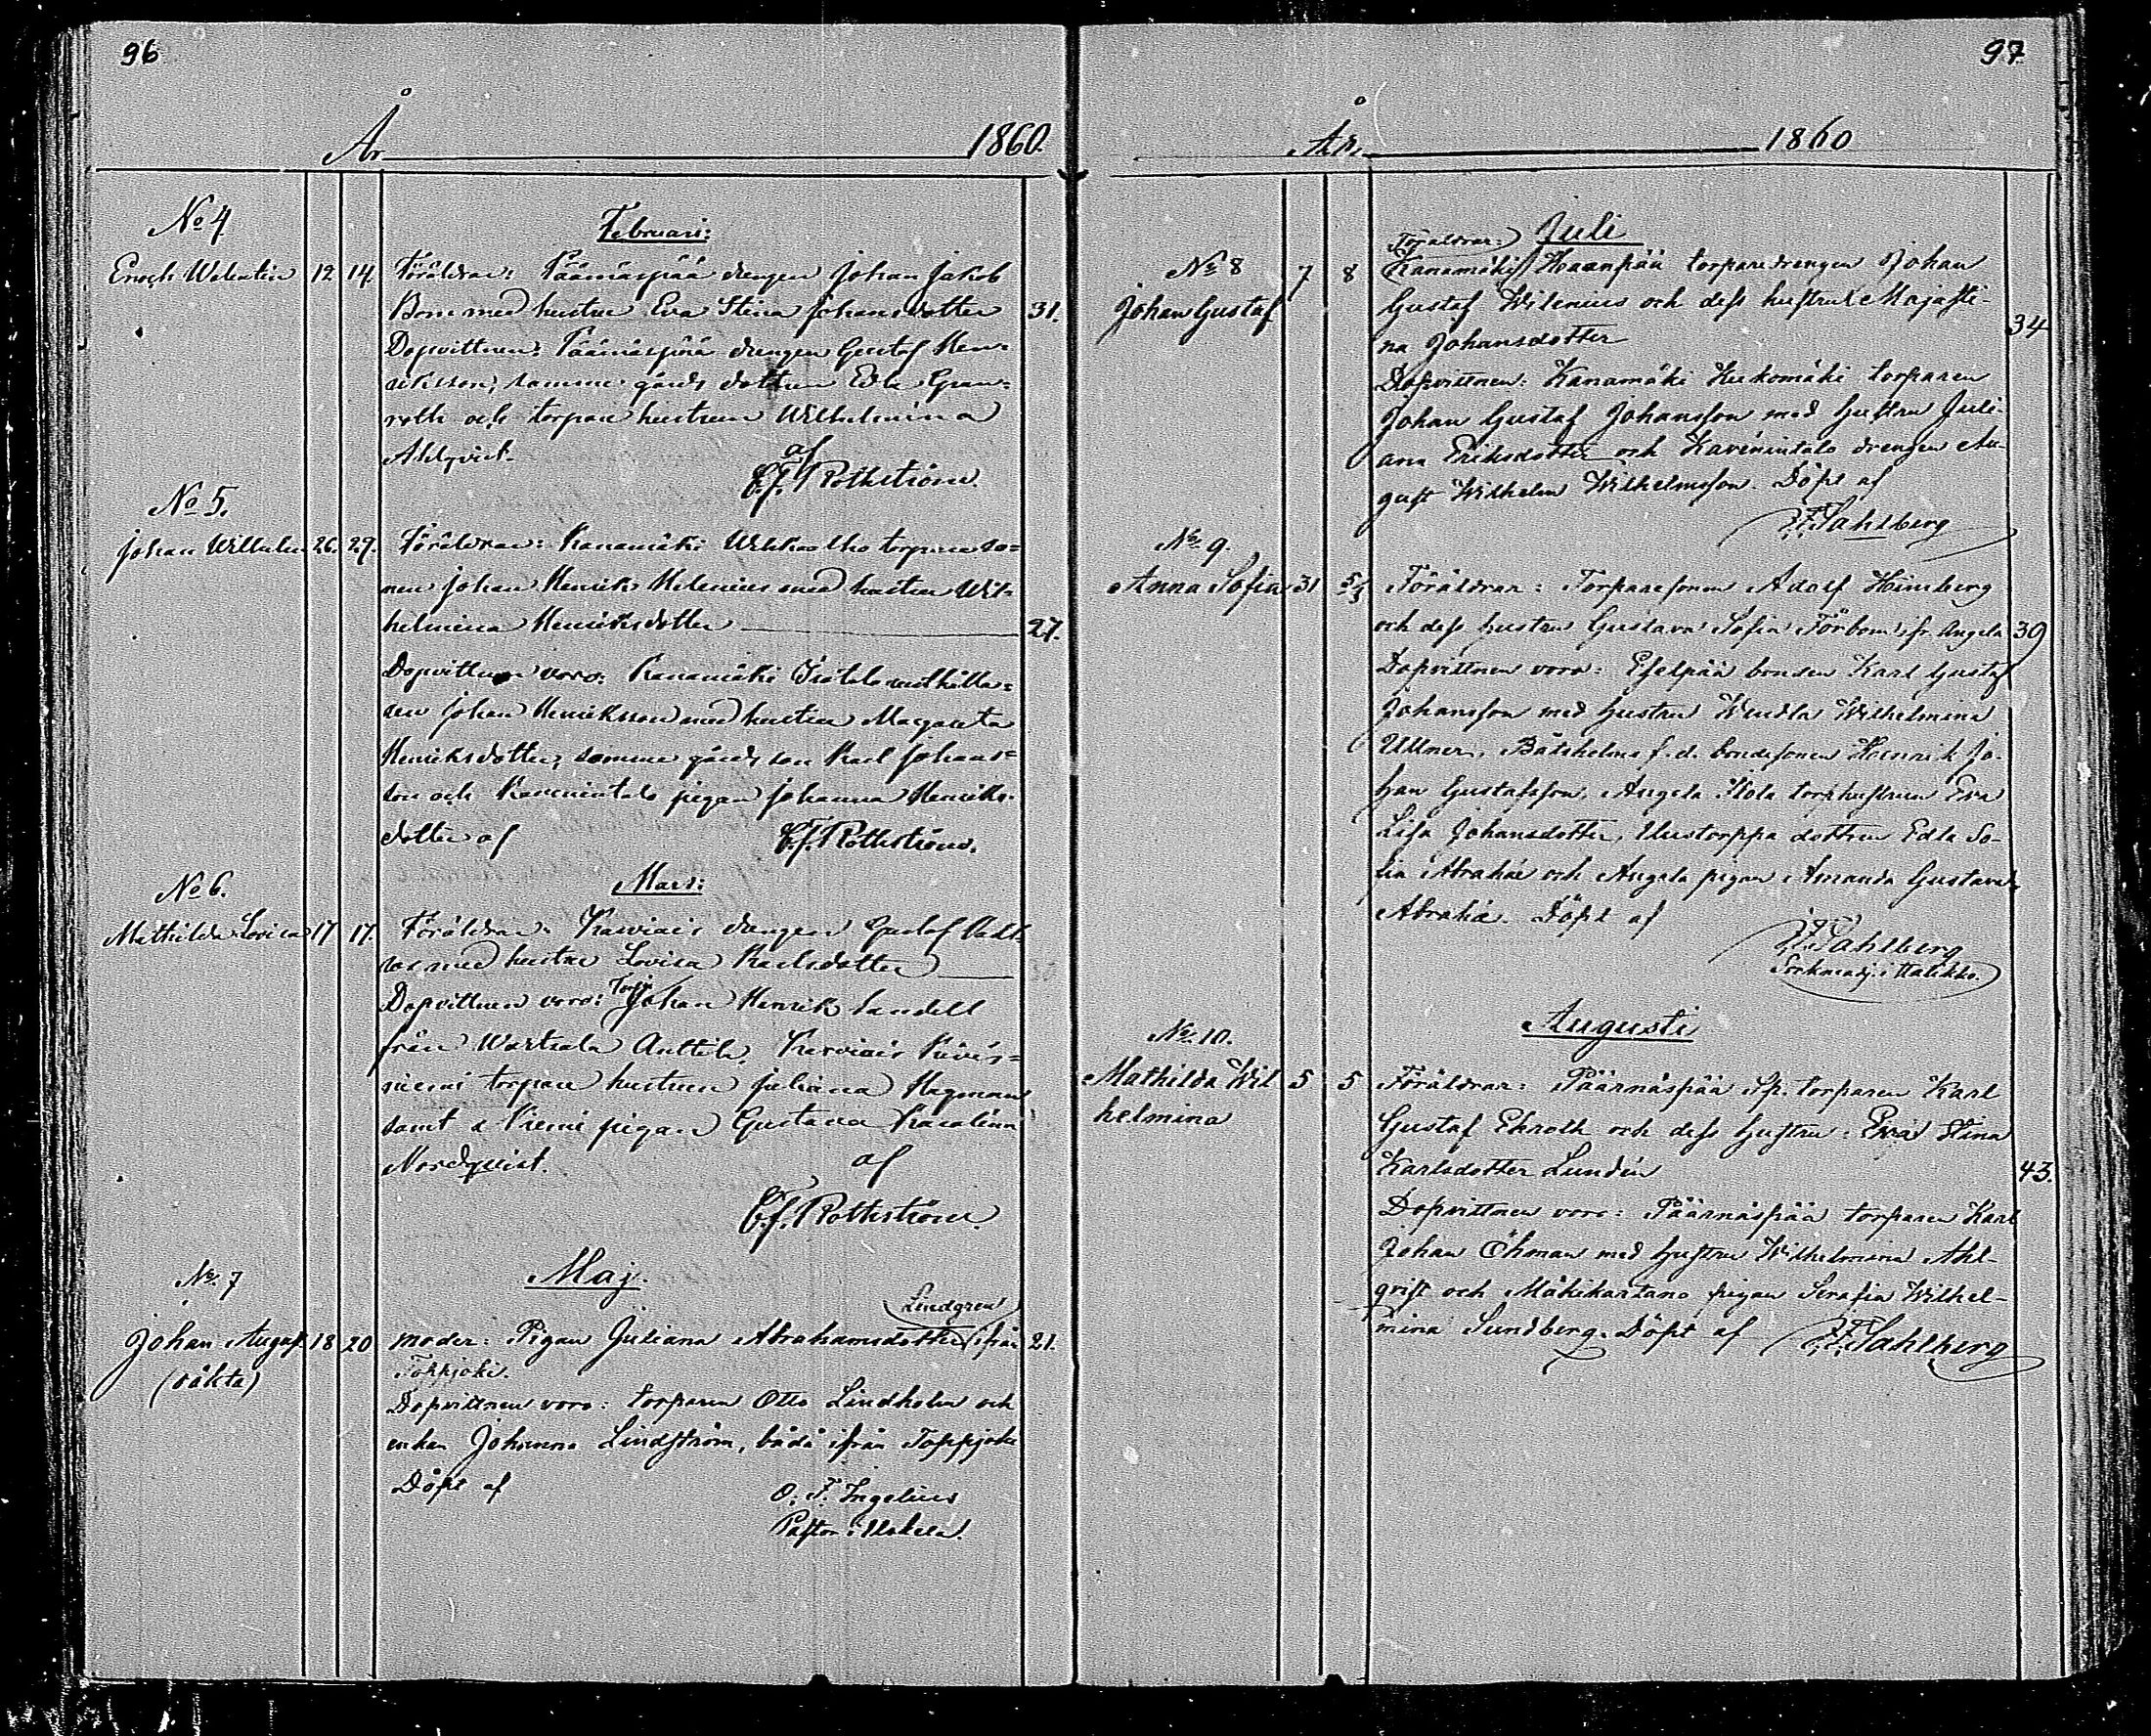 96
År 1860.
No 4.
Februari:
Enoch Walentin 12 14. Föräldrar: Päänäspää drengen Johan Jakob
Bom med hustru Eva Stina Johansdotter 31.
Dopvittnen: Päänäspää drengen Gustaf Hen-
riksson, samme gårds dottren Edla Gran-
roth och torpare hustrun Wilhelmina
Ahlqvist. af
C.J. Rothström.
No 5.
Johan Wilhelm 26. 29. Föräldrar: Kanamäki torpare so-
nen Johan Henrik Helenius med hustru Wil-
helmina Henriksdotter 27.
Dopvittnen voro: Kanamäki
Johan Henriksson med hustru Margareta
Henriksdotter, samme gårds son Karl Johans-
son och pigan Johanna Henriks-
dotter af C.J. Rothström.
Mars:
No 6.
Mathilda Lovisa 17 17. Föräldrar: drengen Gustaf
med hustru Lovisa Karlsdotter
Dopvittnen voro: Torp. Johan Henrik Sandell
från Wartsala Anttila,
torpare hustrun Juliana Hagman
samt pigan Gustava Karolina
Nordquist. af
C.J. Rothström.
No 7
Maj.
Lindgren
Johan August 18 20 moder: Pigan Juliana Abrahamsdotter ifrån 21.
(oäkta) Toppjoki.
Dopvittnen voro: torparen Otto Lindholm och
enkan Johanna Lindström, båda ifrån Toppjoki
Döpt af O. F. Ingelius
Pastor i Uskela.
97
År 1860
Juli
Föräldrar:
No 8 7 8 Kanamäki Haanpää torparedrengen Johan
Johan Gustaf Gustaf Wilenius och dess hustru Majasti-
na Johansdotter 34
Dopvittnen: Kanamäki torparen
Johan Gustaf Johansson med hustru Juli-
ana Eriksdotter och drengen Au-
gust Wilhelm Wilhelmsson. Döpt af
F. Sahlberg
No 9.
Anna Sofia 31 5/8 Föräldrar: Torparesonen Adolf Heimberg
och dess hustru Gustava Sofia Förbom, ifr. Angela 39
Dopvittnen voro: Esselpää bonden Karl Gustaf
Johansson med hustru Wendla Wilhelmina
Ullner, f.d. bondesonen Henrik Jo-
han Gustafsson, Angela torphustrun Eva
Lisa Johansdotter, Uustorppa dottren Edla So-
fia Abrahé och Angela pigan Amanda Gustava
Abrahé. Döpt af
F. Sahlberg
Sockneadj. i Halikko.
Augusti
No 10.
Mathilda Wil 5 5 Föräldrar: Päärnäspää Sp. torparen Karl
helmina Gustaf Ekroth och dess hustru: Eva Stina
Karlsdotter Lundén 43.
Dopvittnen voro: Päärnäspää torparen Karl
Johan Öhman med hustru Wilhelmina Ahl-
qvist och Mäkikartano pigan Serafia Wilhel-
mina Sundberg. Döpt af F. Sahlberg